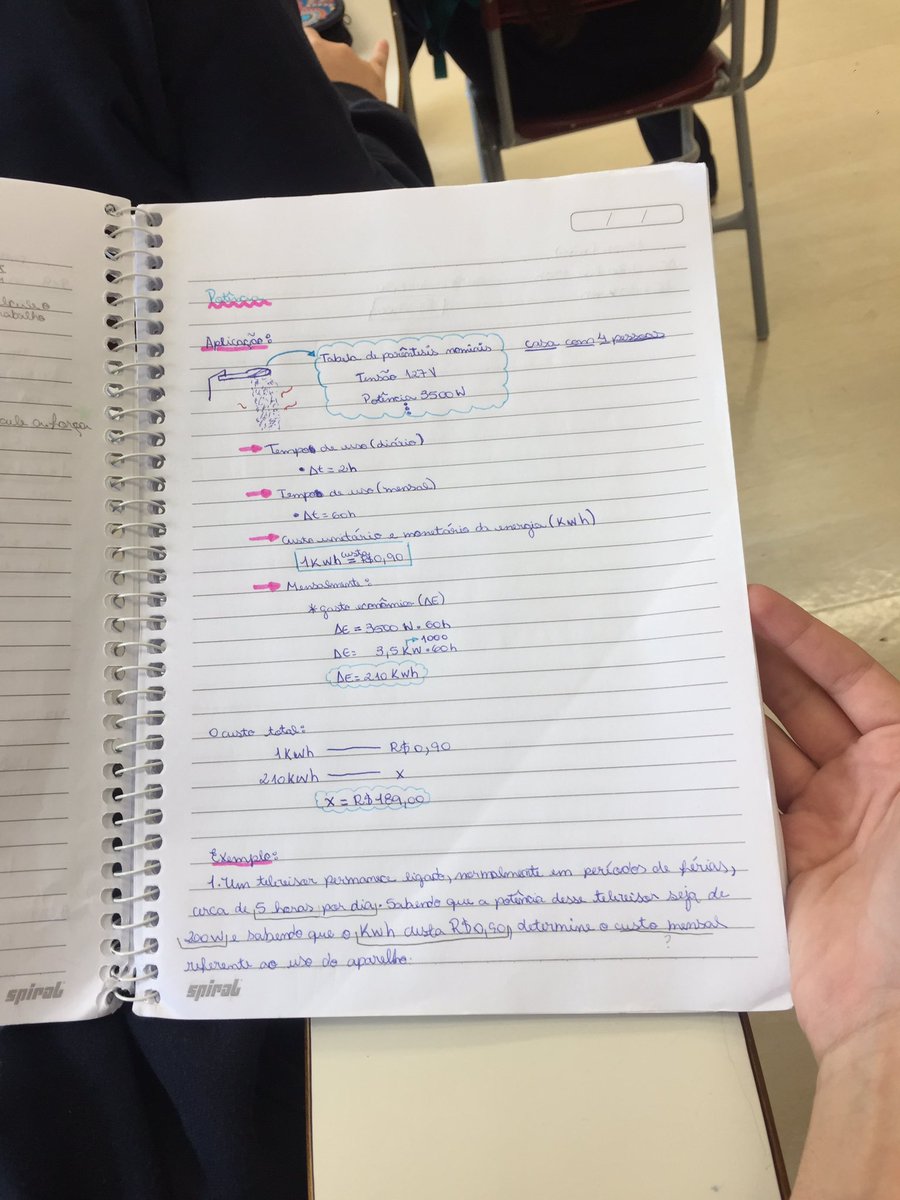 Potência
Aplicação:
Tabela de parêntisis nominais
Tensão 127V
Potência 3500W
casa com 4 pessoas
Tempo de uso (diário)
• Δt = 2h
Tempo de uso (mensal)
• Δt = 60h
Custo unitário e monitário da energia (KWh)
1KWh custa = R$0,90
Mensalmente:
* gasto econômico (ΔE)
ΔE = 3500 W • 60h
1000
ΔE = 3,5 KW • 60h
ΔE = 210 KWh
O custo total:
1KWh —— R$ 0,90
210KWh —— x
x = R$ 189,00
Exemplo:
1. Um televisor permanece ligado, normalmente em períodos de férias,
cerca de 5 horas por dia. Sabendo que a potência desse televisor seja de
200W, e sabendo que o KWh custa R$0,90, determine o custo mensal
?
referente ao uso do aparelho.
spiral
spiral